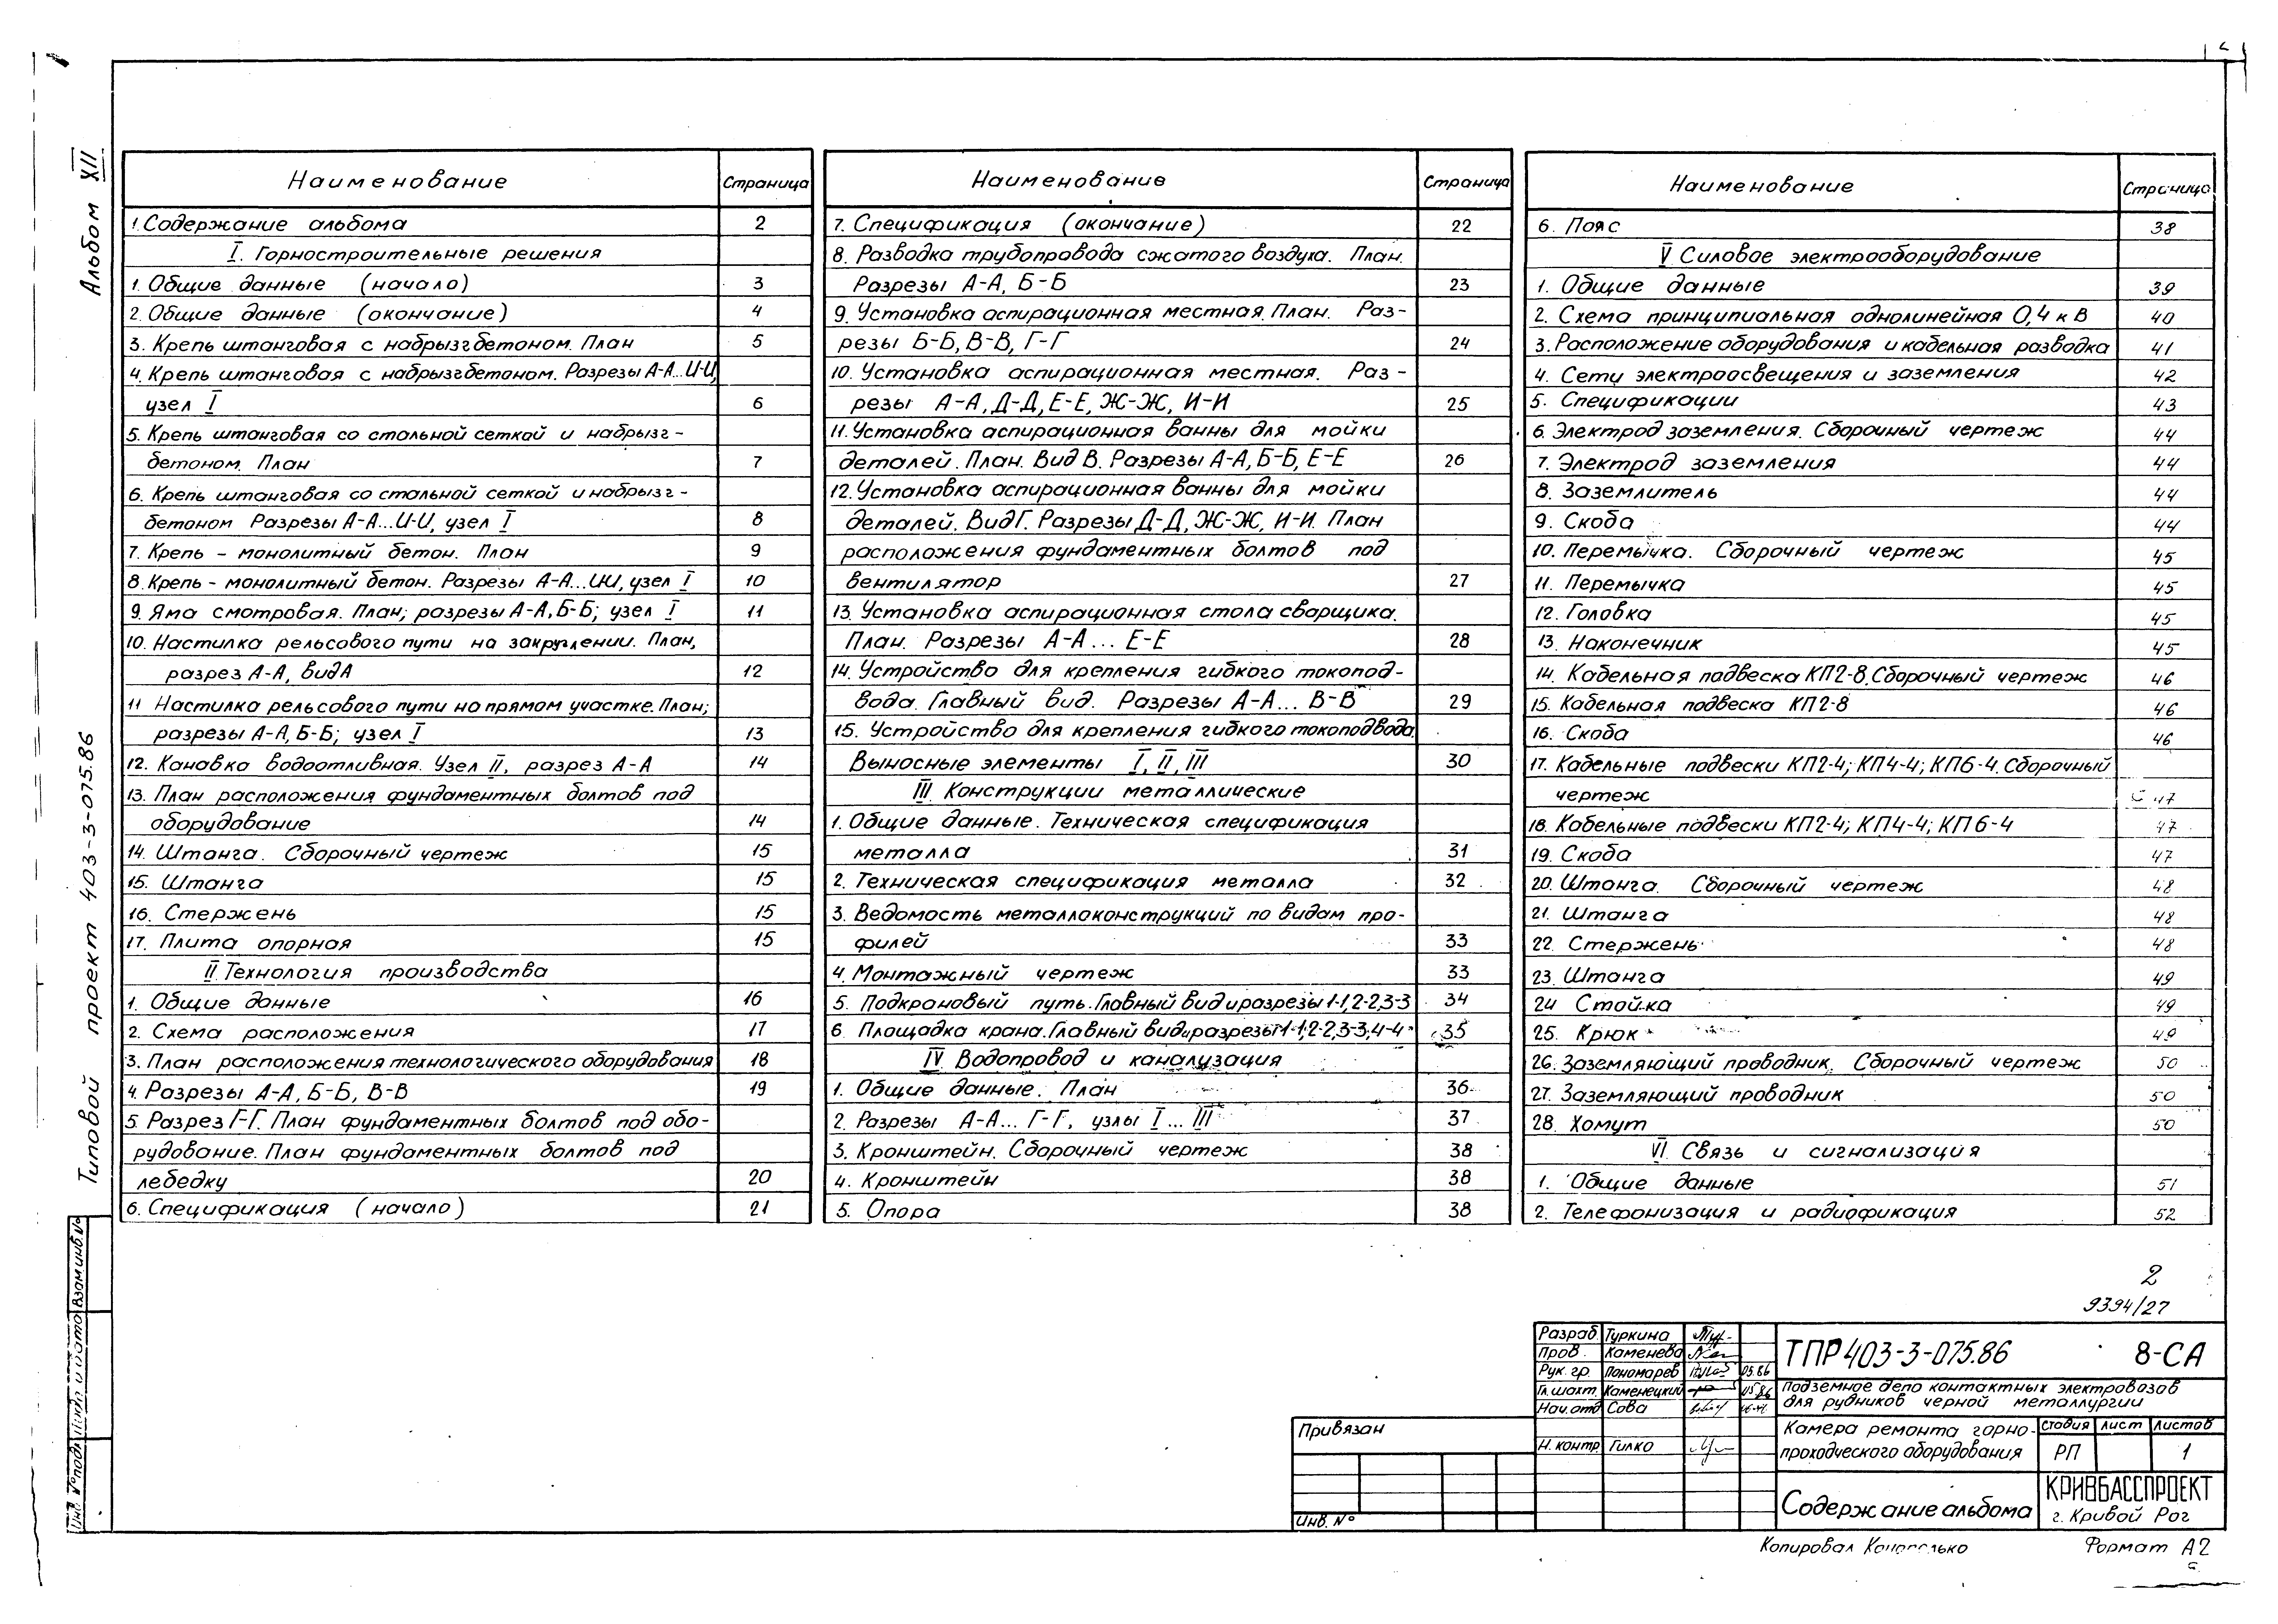 Альбом XII
Типовой проект 403-3-075.86
Наименование Страница
1. Содержание альбома 2
I. Горностроительные решения
1. Общие данные (начало) 3
2. Общие данные (окончание) 4
3. Крепь штанговая с набрызгбетоном. План 5
4. Крепь штанговая с набрызгбетоном. Разрезы А-А...И-И,
узел I 6
5. Крепь штанговая со стальной сеткой и набрызг-
бетоном. План 7
6. Крепь штанговая со стальной сеткой и набрызг-
бетоном Разрезы А-А...И-И, узел I 8
7. Крепь - монолитный бетон. План 9
8. Крепь - монолитный бетон. Разрезы А-А...И-И, узел I 10
9. Яма смотровая. План; разрезы А-А, Б-Б; узел I 11
10. Настилка рельсового пути на закруглении. План,
разрез А-А, вид А 12
11 Настилка рельсового пути на прямом участке. План;
разрезы А-А, Б-Б; узел I 13
12. Канавка водоотливная. Узел II, разрез А-А 14
13. План расположения фундаментных болтов под
оборудование 14
14. Штанга. Сборочный чертеж 15
15. Штанга 15
16. Стержень 15
17. Плита опорная 15
II. Технология производства
1. Общие данные 16
2. Схема расположения 17
3. План расположения технологического оборудования 18
4. Разрезы А-А, Б-Б, В-В 19
5. Разрез Г-Г. План фундаментных болтов под обо-
рудование. План фундаментных болтов под
лебедку 20
6. Спецификация (начало) 21
Наименование Страница
7. Спецификация (окончание) 22
8. Разводка трубопровода сжатого воздуха. План.
Разрезы А-А, Б-Б 23
9. Установка аспирационная местная. План. Раз-
резы Б-Б, В-В, Г-Г 24
10. Установка аспирационная местная. Раз-
резы А-А, Д-Д, Е-Е, Ж-Ж, И-И 25
11. Установка аспирационная ванны для мойки
деталей. План. Вид В. Разрезы А-А, Б-Б, Е-Е 26
12. Установка аспирационная ванны для мойки
деталей. Вид Г. Разрезы Д-Д, Ж-Ж, И-И. План
расположения фундаментных болтов под
вентилятор 27
13. Установка аспирационная стола сварщика.
План. Разрезы А-А... Е-Е 28
14. Устройство для крепления гибкого токопод-
вода. Главный вид. Разрезы А-А... В-В 29
15. Устройство для крепления гибкого токоподвода.
Выносные элементы I, II, III 30
III. Конструкции металлические
1. Общие данные. Техническая спецификация
металла 31
2. Техническая спецификация металла 32
3. Ведомость металлоконструкций по видам про-
филей 33
4. Монтажный чертеж 33
5. Подкрановый путь. Главный вид и разрезы 1-1, 2-2, 3-3 34
6. Площадка крана. Главный вид и разрезы 1-1, 2-2, 3-3, 4-4 35
IV. Водопровод и канализация
1. Общие данные. План 36
2. Разрезы А-А... Г-Г, узлы I ... III 37
3. Кронштейн. Сборочный чертеж 38
4. Кронштейн 38
5. Опора 38
Наименование Страница
6. Пояс 38
V Силовое электрооборудование
1. Общие данные 39
2. Схема принципиальная однолинейная 0,4 кВ 40
3. Расположение оборудования и кабельная разводка 41
4. Сети электроосвещения и заземления 42
5. Спецификации 43
6. Электрод заземления. Сборочный чертеж 44
7. Электрод заземления 44
8. Заземлитель 44
9. Скоба 44
10. Перемычка. Сборочный чертеж 45
11. Перемычка 45
12. Головка 45
13. Наконечник 45
14. Кабельная подвеска КП2-8. Сборочный чертеж 46
15. Кабельная подвеска КП2-8 46
16. Скоба 46
17. Кабельные подвески КП2-4; КП4-4; КП6-4. Сборочный
чертеж 47
18. Кабельные подвески КП2-4; КП4-4; КП6-4 47
19. Скоба 47
20. Штанга. Сборочный чертеж 48
21. Штанга 48
22. Стержень 48
23. Штанга 49
24 Стойка 49
25. Крюк 49
26. Заземляющий проводник. Сборочный чертеж 50
27. Заземляющий проводник 50
28. Хомут 50
VI. Связь и сигнализация
1. Общие данные 51
2. Телефонизация и радиофикация 52
2
9394/27
Разраб. Туркина
Пров. Каменева
Рук. гр. Пономарев 05.86
Гл. шахт. Каменецкий 05.86
Нач. отд Сова
Н. контр. Гилко
ТПР 403-3-075.86 8-СА
Подземное депо контактных электровозов
для рудников черной металлургии
Камера ремонта горно-
проходческого оборудования
Стадия Лист Листов
РП 1
Содержание альбома
КРИВБАССПРОЕКТ
г. Кривой Рог
Привязан
Инв. №
Взам.инв.№
Подп. и дата
Инв. № подл
Копировал
Формат А2